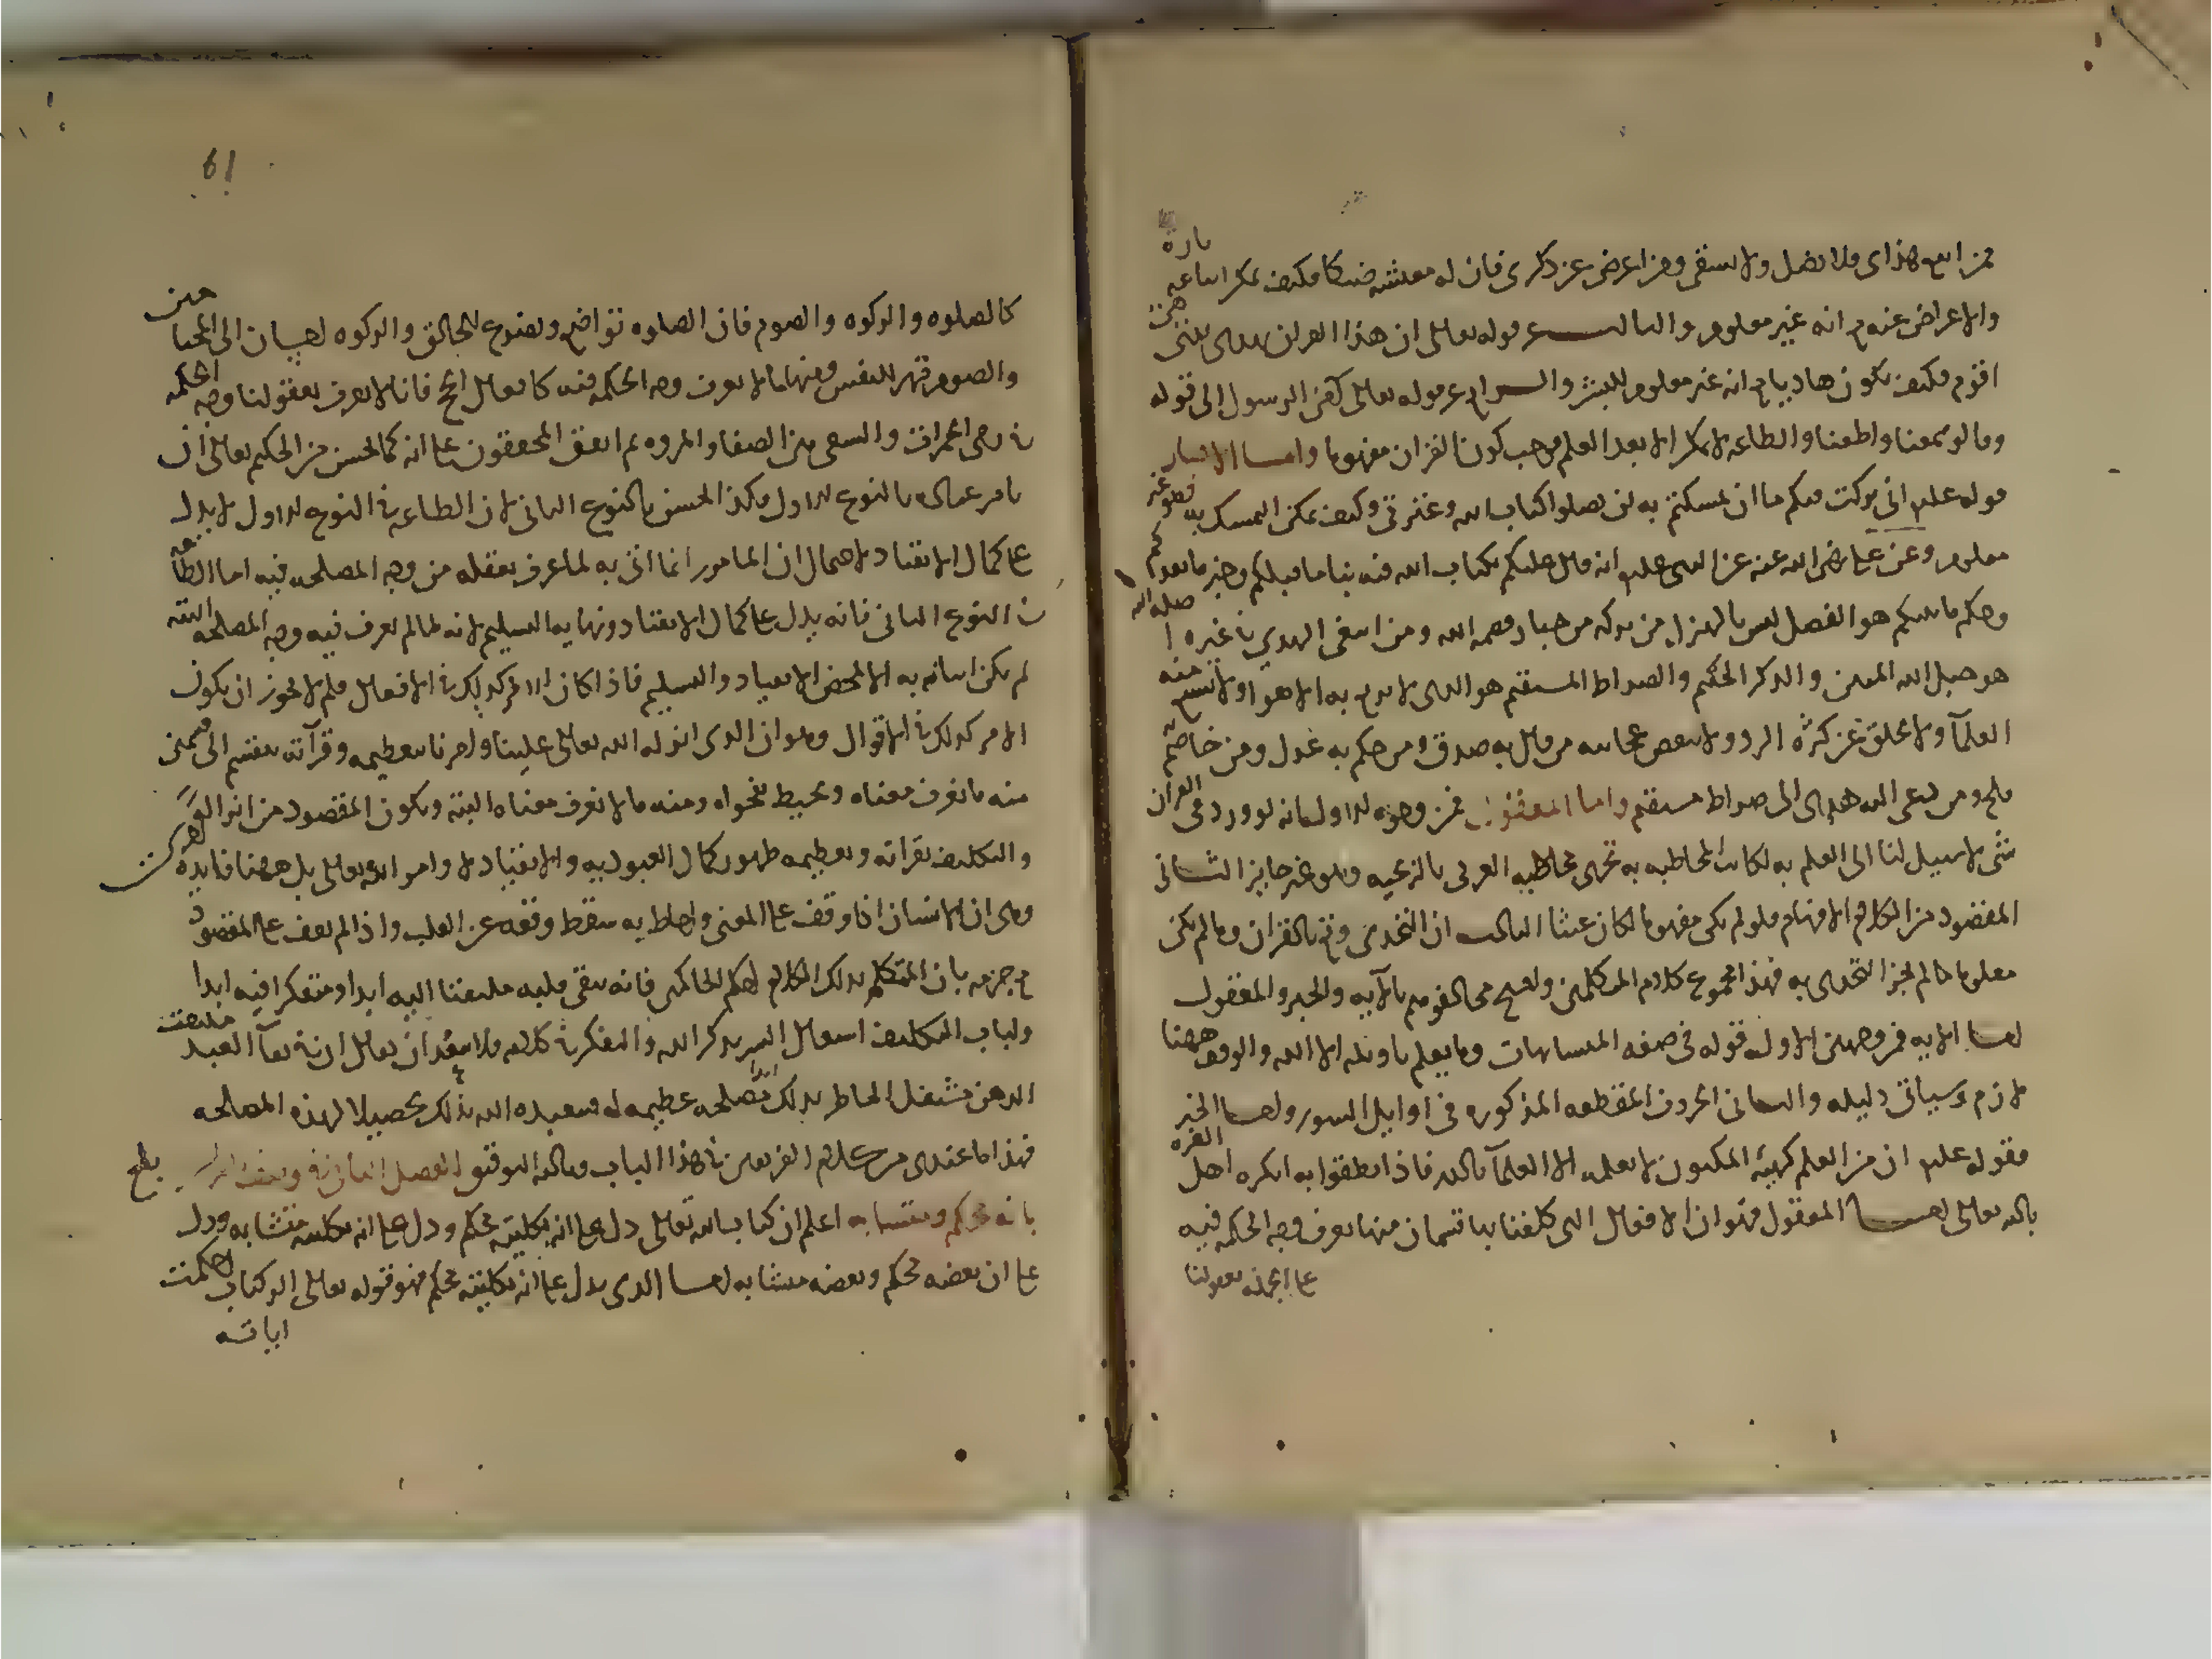 فمن اتبع هداى فلا يضل ولا يشقى ومن اعرض عن ذكرى فان له معيشه ضنكا فكيف يمكن اتباعه تارة
والاعراض عنه مع انه غير معلوم والثالث عشر قوله تعالى ان هذا القران يهدى للتى هى
اقوم فكيف يكون هاديا مع انه غير معلوم للبشر والرابع عشر قوله تعالى آمن الرسول الى قوله
وقالوا سمعنا واطعنا والطاعه لا يمكن الا بعد العلم فوجب كون القران مفهوما واما الاخبار
قوله عليه انى تركت فيكم ما ان تمسكتم به لن تضلوا كتاب الله وعترتى وكيف يمكن التمسك به وهو غير
معلوم وعن على رضى الله عنه عن النبى عليه انه قال عليكم بكتاب الله فيه نبا ما قبلكم وخبر ما بعدكم
وحكم ما بينكم هو الفصل ليس بالهزل من تركه من جبار قصمه الله ومن ابتغى الهدى فى غيره اضله الله
هو حبل الله المتين والذكر الحكيم والصراط المستقيم هو الذى لا يزيغ به الاهوا ولا يشبع منه
العلمآ ولا يخلق عن كثرة الرد ولا ينقضى عجائبه من قال به صدق ومن حكم به عدل ومن خاصم به
فلج ومن دعى اليه هدى الى صراط مستقيم واما المعقول فمن وجوه الاول انه لو ورد فى القران
شى لا سبيل لنا الى العلم به لكانت المخاطبه به تجرى مخاطبه العربى بالزنجيه وهو غير جايز الثانى
المقصود من الكلام الافهام فلو لم يكن مفهوما لكان عبثا الثالث ان التحدى وقع بالقران وما لم يكن
معلوما لم يجز التحدى به فهذا مجموع كلام المتكلمين واحتج مخالفوهم بالآيه والخبر والمعقول
اما الايه فمن وجهين الاول قوله فى صفه المتشابهات وما يعلم تاويله الا الله والوقف ههنا
لازم وسياتى دليله والثانى الحروف المقطعه المذكوره فى اوايل السور واما الخبر
فقوله عليه ان من العلم كهيئه المكنون لا يعلمه الا العلمآ بالله فاذا نطقوا به انكره اهل الغره
بالله تعالى اما المعقول فهو ان الافعال التى كلفنا بها قسمان منها يعرف وجه الحكمه فيه
على الجمله بعقولنا
61
كالصلوه والزكوه والصوم فان الصلوه تواضع وتضرع للخالق والزكوه احسان الى المحتاجين
والصوم قهر للنفس ومنها ما لا يعرف وجه الحكمه فيه كافعال الحج فانا لا نعرف بعقولنا وجه الحكمه
فى رمى الجمرات والسعى بين الصفا والمروه ثم اتفق المحققون على انه كما يحسن من الحكيم تعالى ان
يامر عباده بالنوع الاول فكذا يحسن بالنوع الثانى لان الطاعه فى النوع الاول لا يدل
على كمال الانقياد لاحتمال ان المامور انما اتى به لما عرف بعقله من وجه المصلحه فيه اما الطاعه
فى النوع الثانى فانه يدل على كمال الانقياد ونهايه التسليم لانه لما لم يعرف فيه وجه المصلحه البته
لم يكن اتيانه به الا لمحض الانقياد والتسليم فاذا كان الامر كذلك فى الافعال فلم لا يجوز ان يكون
الامر كذلك فى الاقوال وهو ان الذى انزله الله تعالى علينا وامرنا بتعظيمه وقرآته ينقسم الى قسمين
منه ما نعرف معناه ونحيط بفحواه ومنه ما لا نعرف معناه البته ويكون المقصود من انزاله
والتكليف بقراته وتعظيمه ظهور كمال العبوديه والانقياد لاوامر الله تعالى بل ههنا فايدة اخرى
وهى ان الانسان اذا وقف على المعنى واحاط به سقط وقعه عن القلب واذا لم يقف على المقصود
مع جزمه بان المتكلم بذلك الكلام احكم الحاكمين فانه يبقى قلبه ملتفتا اليه ابدا ومتفكرا فيه ابدا
ولباب التكليف اشتغال السر بذكر الله والتفكر فى كلامه فلا يبعد ان يقال ان فى بقآ العبد ملتفت
الذهن مشتغل الخاطر بذلك ابدا مصلحه عظيمه له فيتعبده الله بذلك تحصيلا لهذه المصلحه
فهذا ما عندى من كلام الفريقين فى هذا الباب وبالله التوفيق الفصل الثانى فى وصف القران
بانه محكم ومتشابه اعلم ان كتاب الله تعالى دل على انه بكليته محكم ودل على انه بكليته متشابه ودل
على ان بعضه محكم وبعضه متشابه اما الذى يدل على انه بكليته محكم فهو قوله تعالى الر كتاب احكمت
اياته